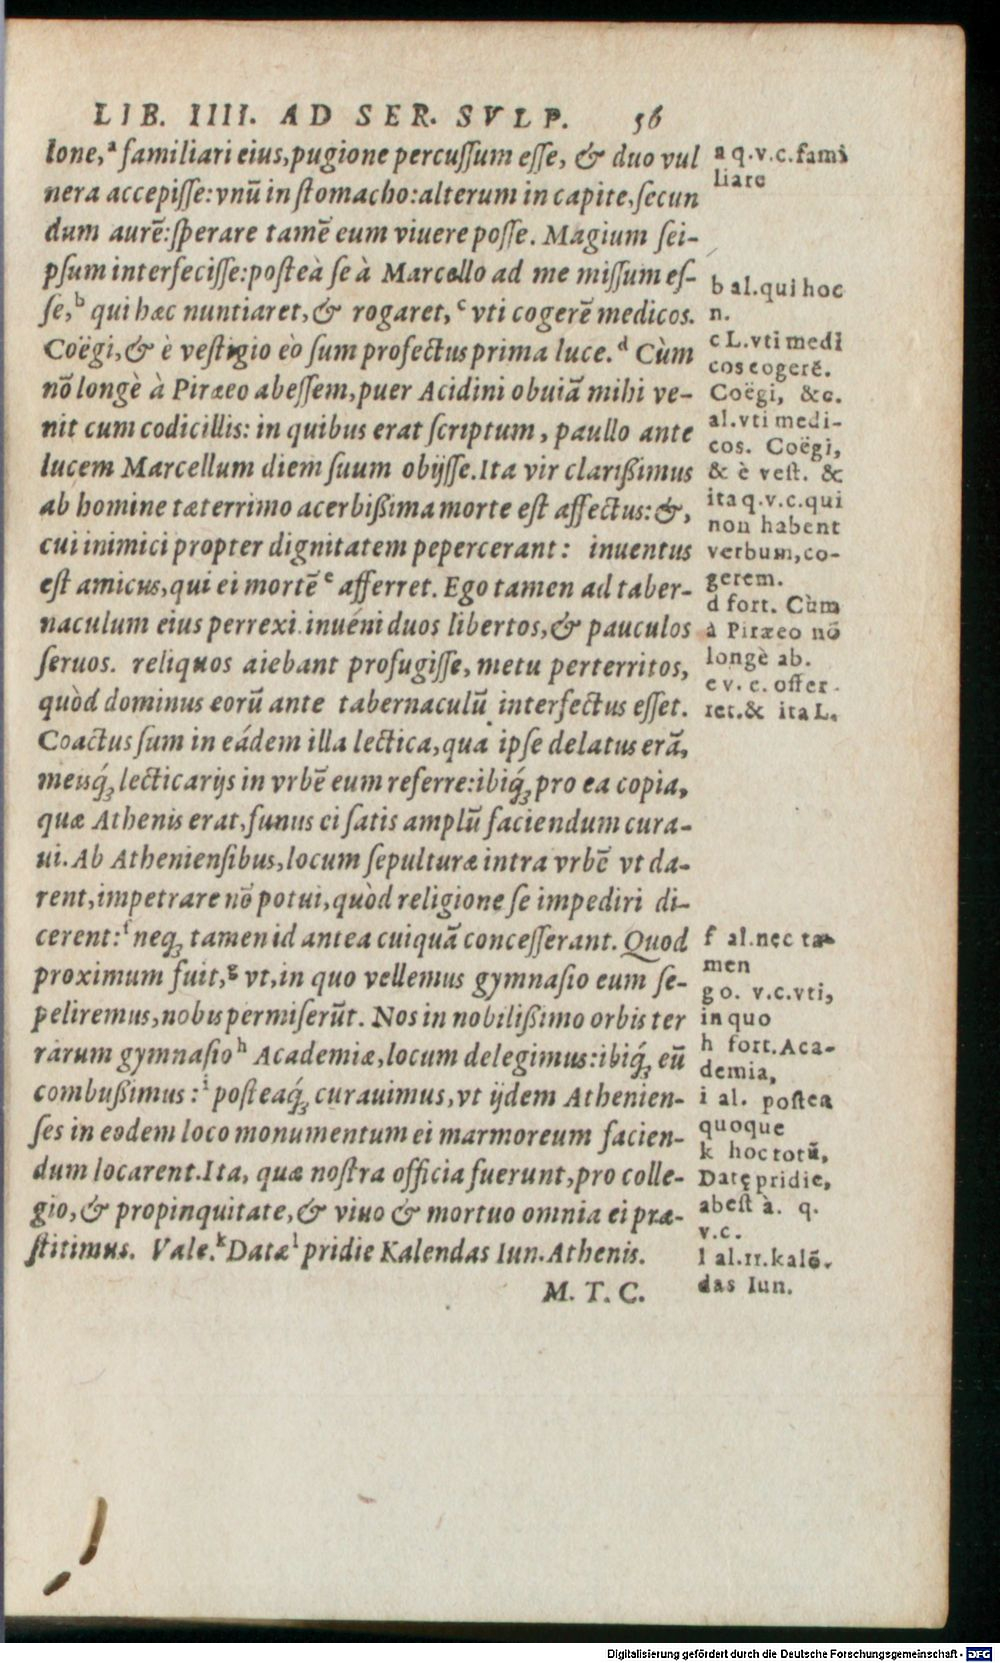 LIB. IIII. AD SER. SVLP. 56
lone,ᵃ familiari eius, pugione percuſſum eſſe, & duo vul
nera accepiſſe: vnũ in ſtomacho: alterum in capite, ſecun
dum aurẽ: ſperare tamẽ eum viuere poſſe. Magium ſei-
pſum interfeciſſe: poſteà ſe à Marcello ad me miſſum eſ-
ſe,ᵇ qui hæc nuntiaret, & rogaret,ᶜ vti cogerẽ medicos.
Coëgi, & è veſtigio eò ſum profectus prima luce.ᵈ Cùm
nõ longè à Piræeo abeſſem, puer Acidini obuiã mihi ve-
nit cum codicillis: in quibus erat ſcriptum, paullo ante
lucem Marcellum diem ſuum obijſſe. Ita vir clarißimus
ab homine tæterrimo acerbißima morte eſt affectus: &,
cui inimici propter dignitatem pepercerant: inuentus
eſt amicus, qui ei mortẽᵉ afferret. Ego tamen ad taber-
naculum eius perrexi. inuéni duos libertos, & pauculos
ſeruos. reliquos aiebant profugiſſe, metu perterritos,
quòd dominus eorũ ante tabernaculũ interfectus eſſet.
Coactus ſum in eádem illa lectica, qua ipſe delatus erã,
meisq́ꝫ lecticarijs in vrbẽ eum referre: ibiq́ꝫ pro ea copia,
quæ Athenis erat, funus ei ſatis amplũ faciendum cura-
ui. Ab Athenienſibus, locum ſepulturæ intra vrbẽ vt da-
rent, impetrare nõ potui, quòd religione ſe impediri di-
cerent:ᶠ neqꝫ tamen id antea cuiquã conceſſerant. Quod
proximum fuit,ᵍ vt, in quo vellemus gymnaſio eum ſe-
peliremus, nobis permiſerũt. Nos in nobilißimo orbis ter
rarum gymnaſioʰ Academiæ, locum delegimus: ibiq́ꝫ eũ
combußimus:ⁱ poſteaq́ꝫ curauimus, vt ijdem Athenien-
ſes in eodem loco monumentum ei marmoreum facien-
dum locarent. Ita, quæ noſtra officia fuerunt, pro colle-
gio, & propinquitate, & viuo & mortuo omnia ei præ-
ſtitimus. Vale.ᵏ Datæˡ pridie Kalendas Iun. Athenis.
M. T. C.
a q.v.c.fami
liare
b al.qui hoc
n.
c L.vti medi
cos cogerẽ.
Coëgi, &c.
al.vti medi-
cos. Coëgi,
& è veſt. &
ita q.v.c.qui
non habent
verbum,co-
gerem.
d fort. Cùm
à Piræeo nõ
longè ab.
e v. c. offer-
ret.& ita L.
f al.nec ta-
men
g o. v.c.vti,
in quo
h fort.Aca-
demia,
i al. poſtea
quoque
k hoc totũ,
Datę pridie,
abeſt à. q.
v.c.
l al.II.kalẽ-
das Iun.
Digitalisierung gefördert durch die Deutsche Forschungsgemeinschaft - DFG